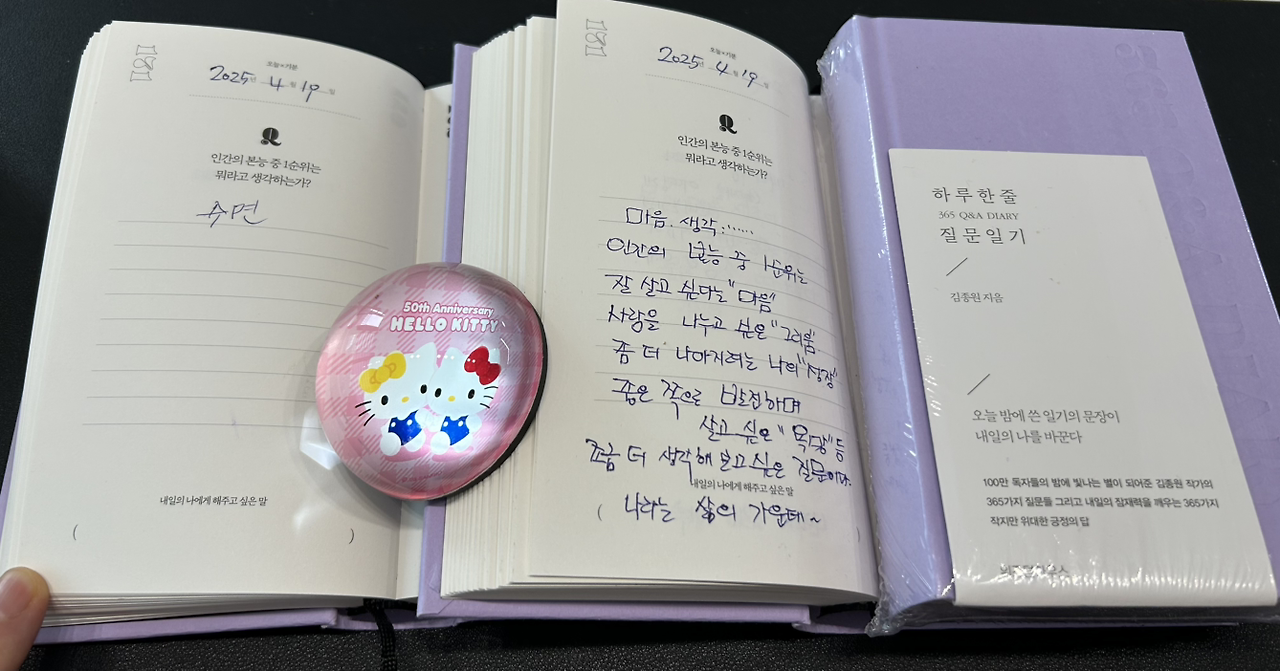 181
오늘의 기분
2025년 4월 19일
인간의 본능 중 1순위는
뭐라고 생각하는가?
수면
내일의 나에게 해주고 싶은 말
( )
50th Anniversary
HELLO KITTY
181
오늘의 기분
2025년 4월 19일
인간의 본능 중 1순위는
뭐라고 생각하는가?
마음. 생각......
인간의 본능 중 1순위는
잘 살고 싶다는 "마음"
사랑을 나누고 싶은 "그리움"
좀 더 나아지려는 나의 "성장"
좋은 쪽으로 발전하며
살고 싶은 "욕망" 등
조금 더 생각해 보고 싶은 질문이다.
내일의 나에게 해주고 싶은 말
( 나라는 삶의 가운데~
하루 한 줄
365 Q&A DIARY
질문 일기
김종원 지음
오늘 밤에 쓴 일기의 문장이
내일의 나를 바꾼다
100만 독자들의 밤에 빛나는 별이 되어준 김종원 작가의
365가지 질문들 그리고 내일의 잠재력을 깨우는 365가지
작지만 위대한 긍정의 답